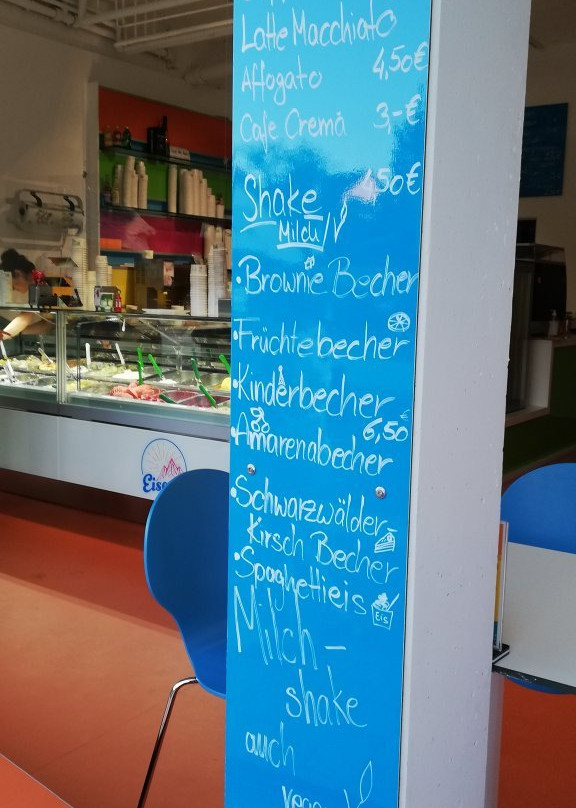 Latte Macchiato
4,50€
Affogato
Cafe Crema 3,-€
Shake 4,50€
Milch/V
•Brownie Becher
•Früchtebecher
•Kinderbecher
6,50€
•Amarenabecher
•Schwarzwälder-
Kirsch Becher
•Spaghettieis
Eis
Milch-
shake
auch